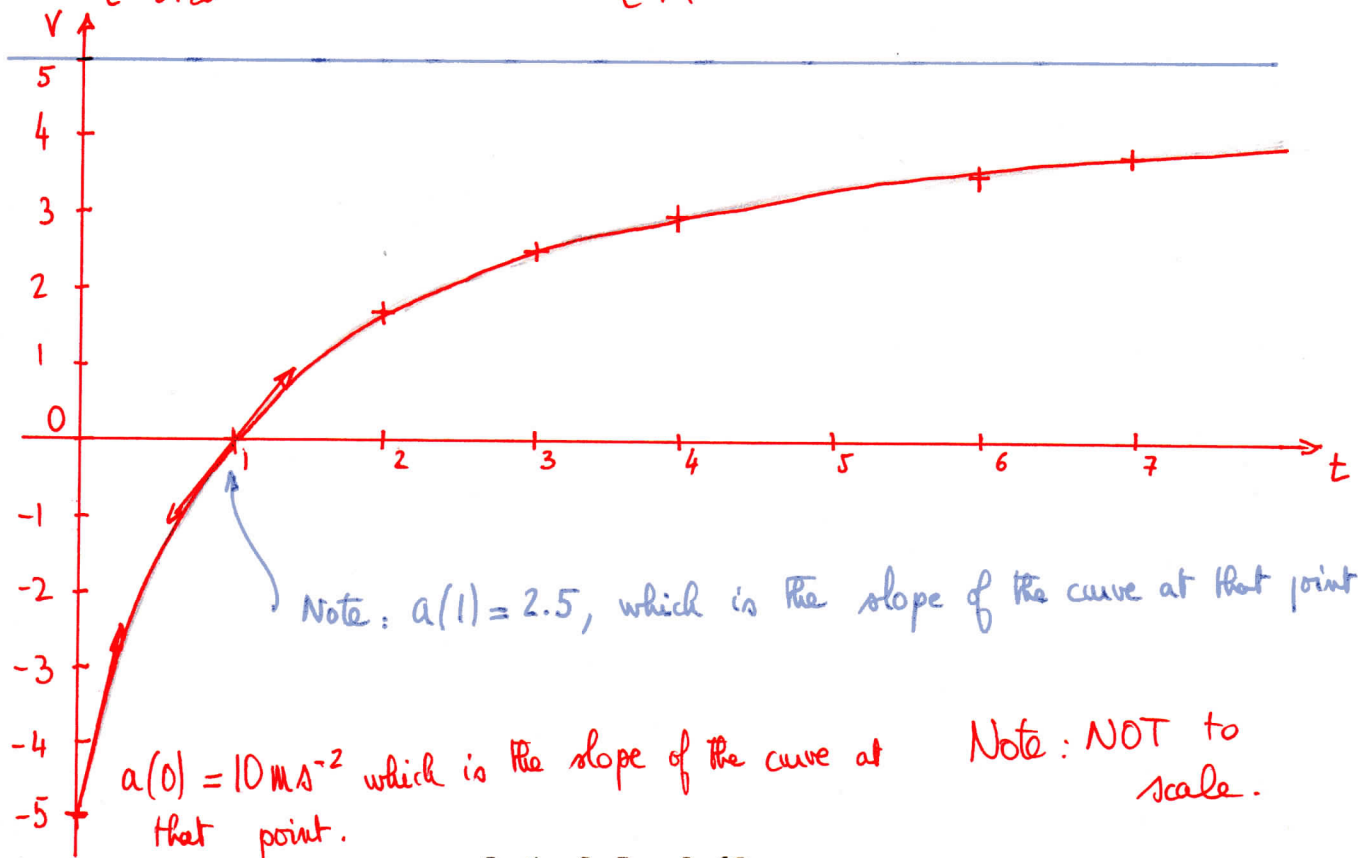 V
5
4
3
2
1
0
1 2 3 4 5 6 7 t
-1
-2
Note: a(1) = 2.5, which is the slope of the curve at that point
-3
-4
a(0) = 10 ms⁻² which is the slope of the curve at
that point.
Note: NOT to
scale.
-5